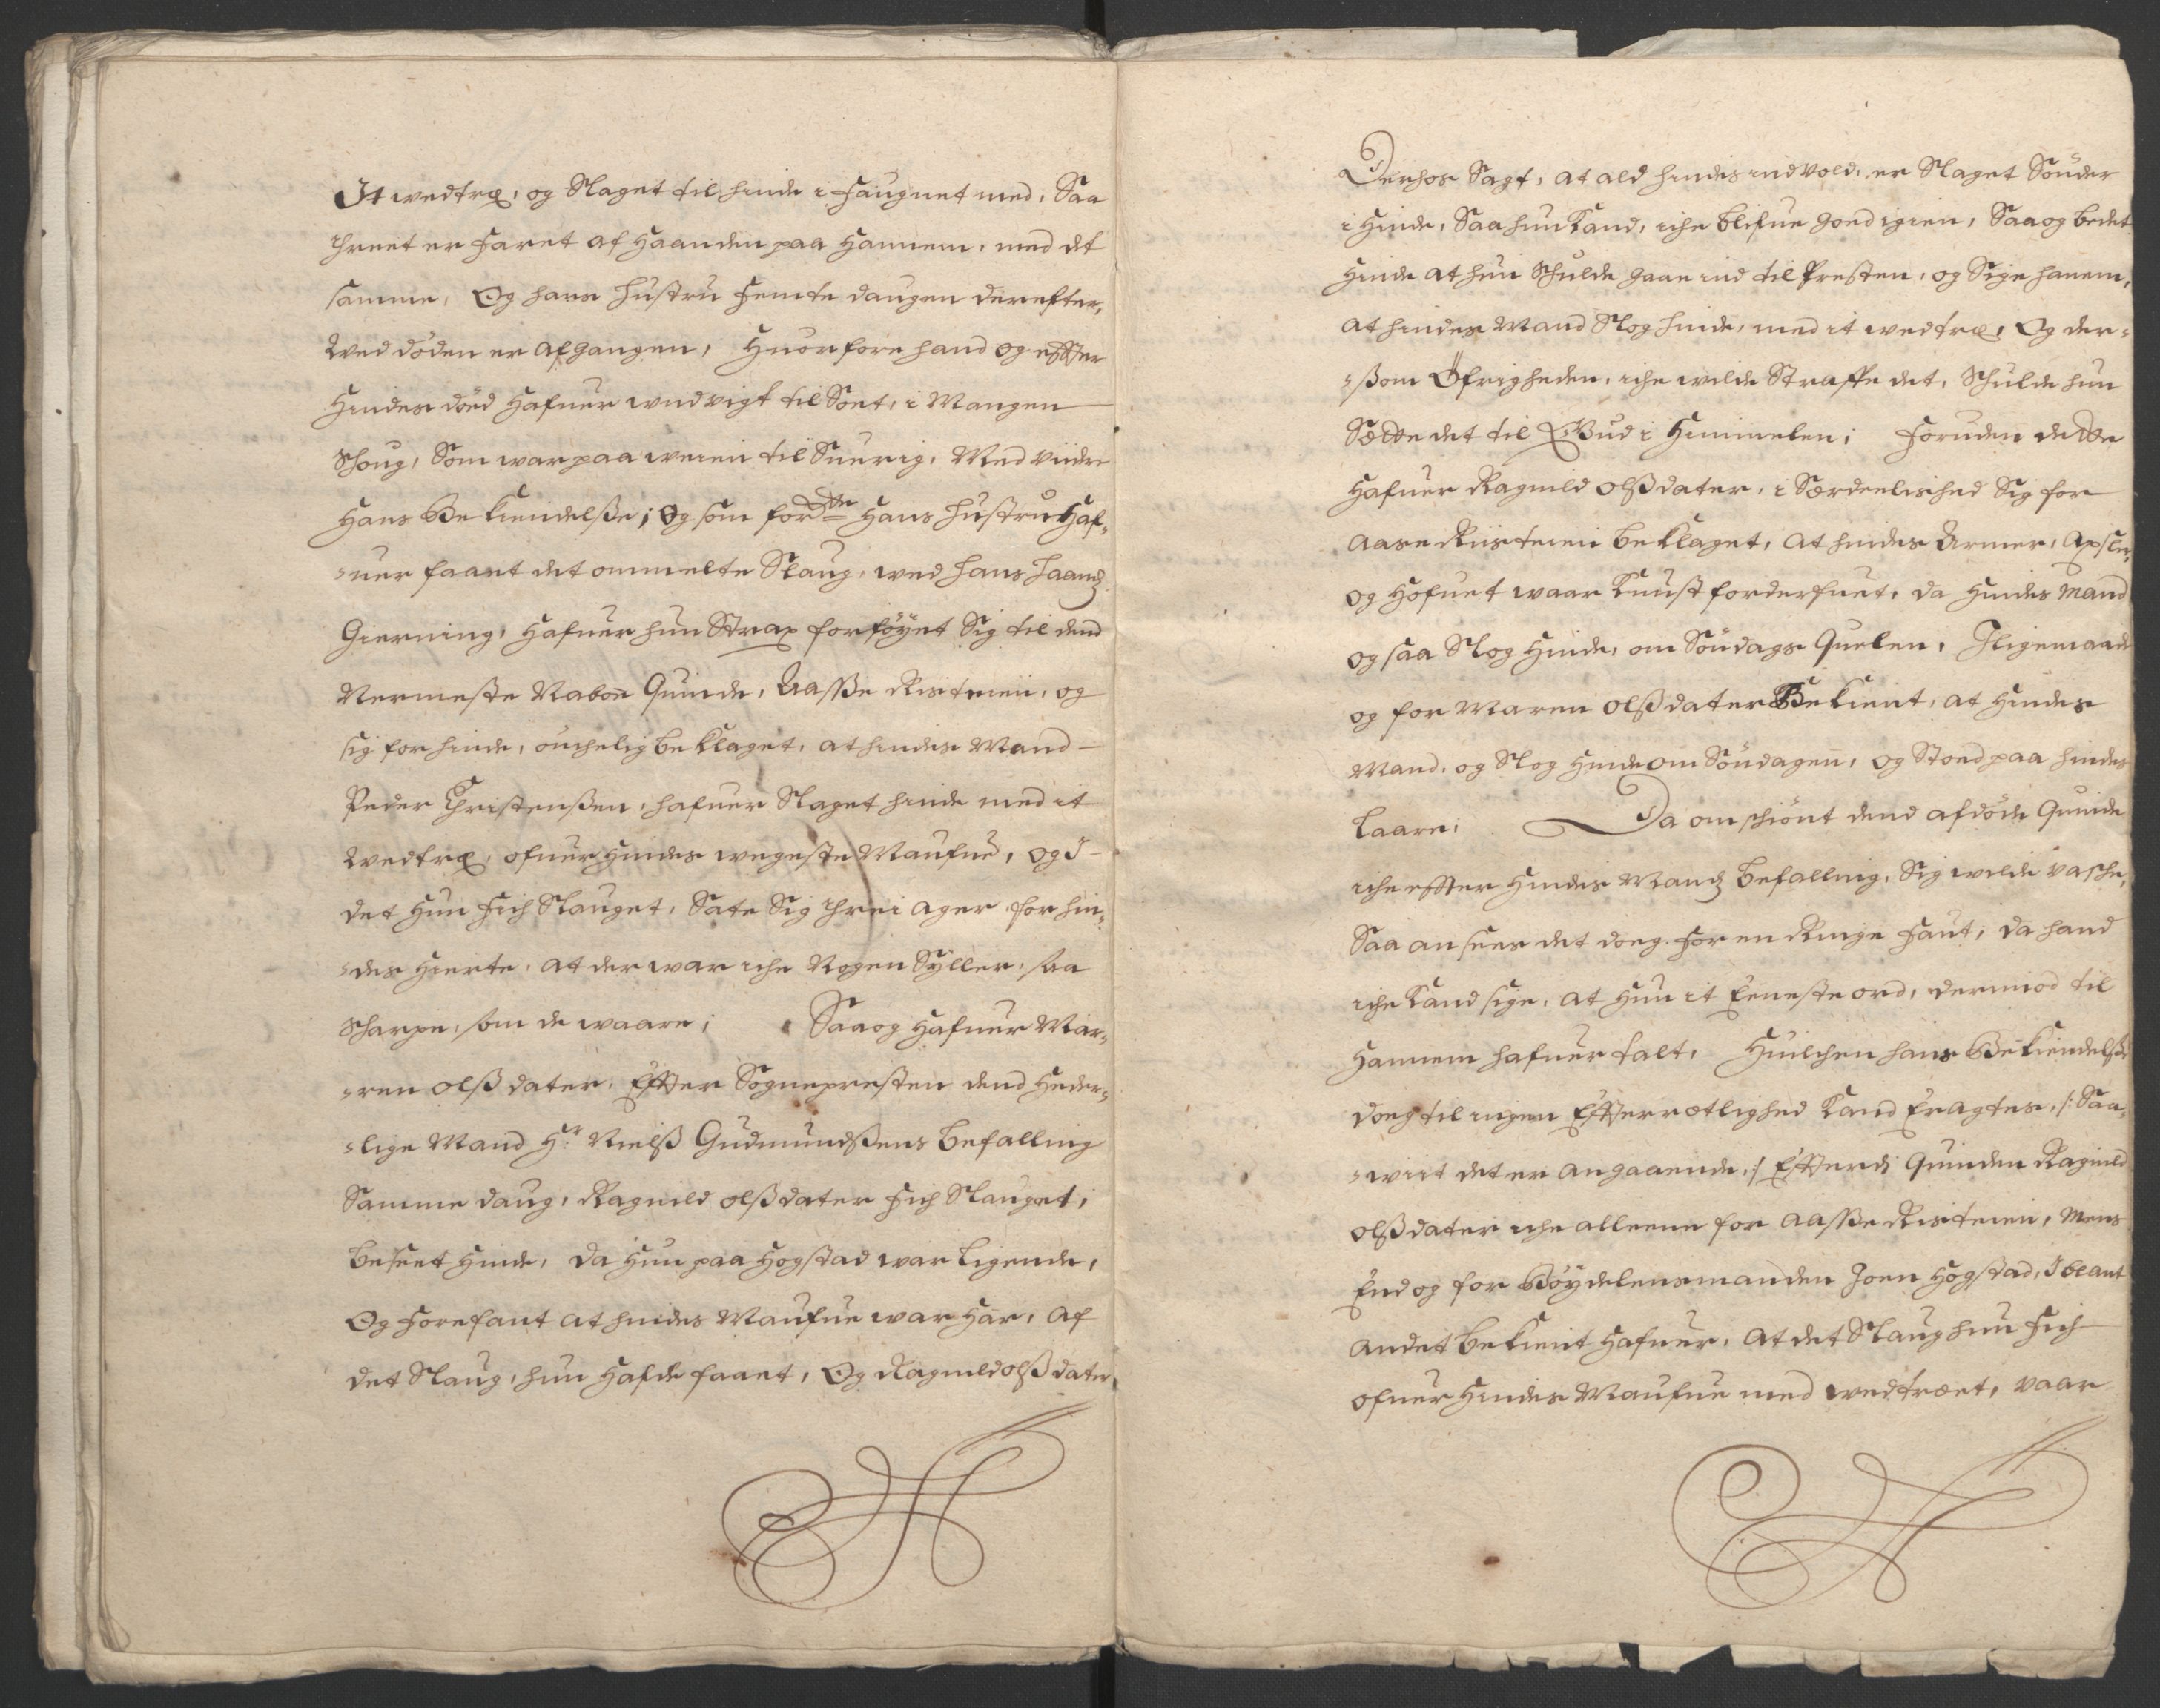 It wedtræ, og Slaget til hinde i Faugnet med, Saa
threet er Faret af Haanden paa Hannem, med det
samme, Og hans Hustru Femte daugen derefter,
Wed döden er afgangen, Huorfore hand og effter
Hindes död Hafuer undvigt til Soet, i Mangen
Schoug, Som war paa weien til Suerig, Med viidre
Hans Bekiendelße; Og som fordte Hans Hustru Haf-
uer faaet det ommelte Slaug, wed hans Haandz
Gierning, Hafuer hun Strax forföyet Sig til dend
Nermeste Naboe Quinde, Aasße Risteien, og
sig for hinde, önchelig beklaget, at hindes Mand
Peder Christenßen, hafuer Slaget hinde med it
Wedtræ, ofuer Hindes wegeste Maufue, og I
det Hun Fich Slauget, Sate Sig threi ager for hin-
des Hierte, at der war iche Nogen Syller, saa
Scharpe, som de waare; Saa og Hafuer Mar-
ren Olßdater, Effter Sognepresten dend Heder-
lige Mand Hr: Nielß Gudmundßens Befalling
Samme daug, Ragnild Olßdater Fich Slauget,
beseet Hinde, da Hun paa Hogstad war Ligende,
Og Forefant at hindes Maufue war Har, af
det Slaug, hun Hafde faaet, Og Ragnild Olßdater
Derhos Sagt, at ald hindes indvold, er Slaget Sönder
i Hinde, Saa hun Kand, iche blifue goed igien, Saa og bedet
Hinde at hun Schulde gaae ind til Presten, og Sige hanem,
at hindes Mand Slog hinde, med it wedtræ, Og der-
ßom Öfrigheden, iche wilde Straffe det, Schulde hun
Sætte det til Gud i Himmelen; Foruden dette
Hafuer Ragnild Olßdater, i Særdeelished Sig for
Aase Riisteien beklaget, at hindes Armer, Axsler,
og Hofuet waar Knust forderfuet, da Hindes Mand
og saa Slog Hinde, om Söndags Quelen, Iligemaade
og for Maren Olßdater Bekient, at Hindes
Mand, og Slog Hinde om Söndagen, og Stoed paa hindes
Laare; Da omschiönt dend afdöde Quinde
iche effter Hindes Mandz befalling, Sig wilde vasche,
Saa ansees det doeg for en Ringe Faut, da hand
iche Kand sige, at Hun it Eeneste ord, dermod til
Hannem hafuer talt, Huilchen hans Bekiendelße
doeg til ingen Effterrætlighed Kand Eragtes, /: Saa-
wiit det er angaaende :/ Efferdj Quinden Ragnild
Olßdater iche alleene for Aasße Risteien, Mens
End og for Böydelensmanden Joen Hogstad, Iblant
andet bekient Hafuer, at det Slaug hun Fich
ofuer Hindes Maufue med wedtræet, vaar